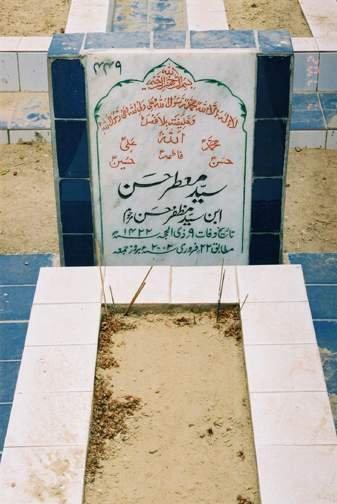 ۴۴۹
بسم اللہ الرحمن الرحیم
لا الہ الا اللہ محمد رسول اللہ علی ولی اللہ وصی رسول اللہ
و خلیفتہ بلا فصل
محمدؐ اللہ علیؑ
حسنؑ فاطمہؑ حسینؑ
سیّد معطر حسن
ابن سیّد مظفر حسن مرحوم
تاریخ وفات ۹ ذی الحجہ ۱۴۲۲ھ
مطابق ۲۲ فروری ۲۰۰۲ء بروز جمعہ